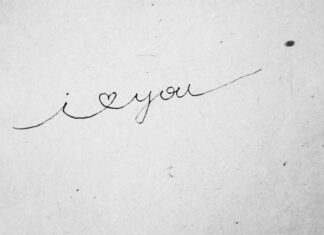 i♡you